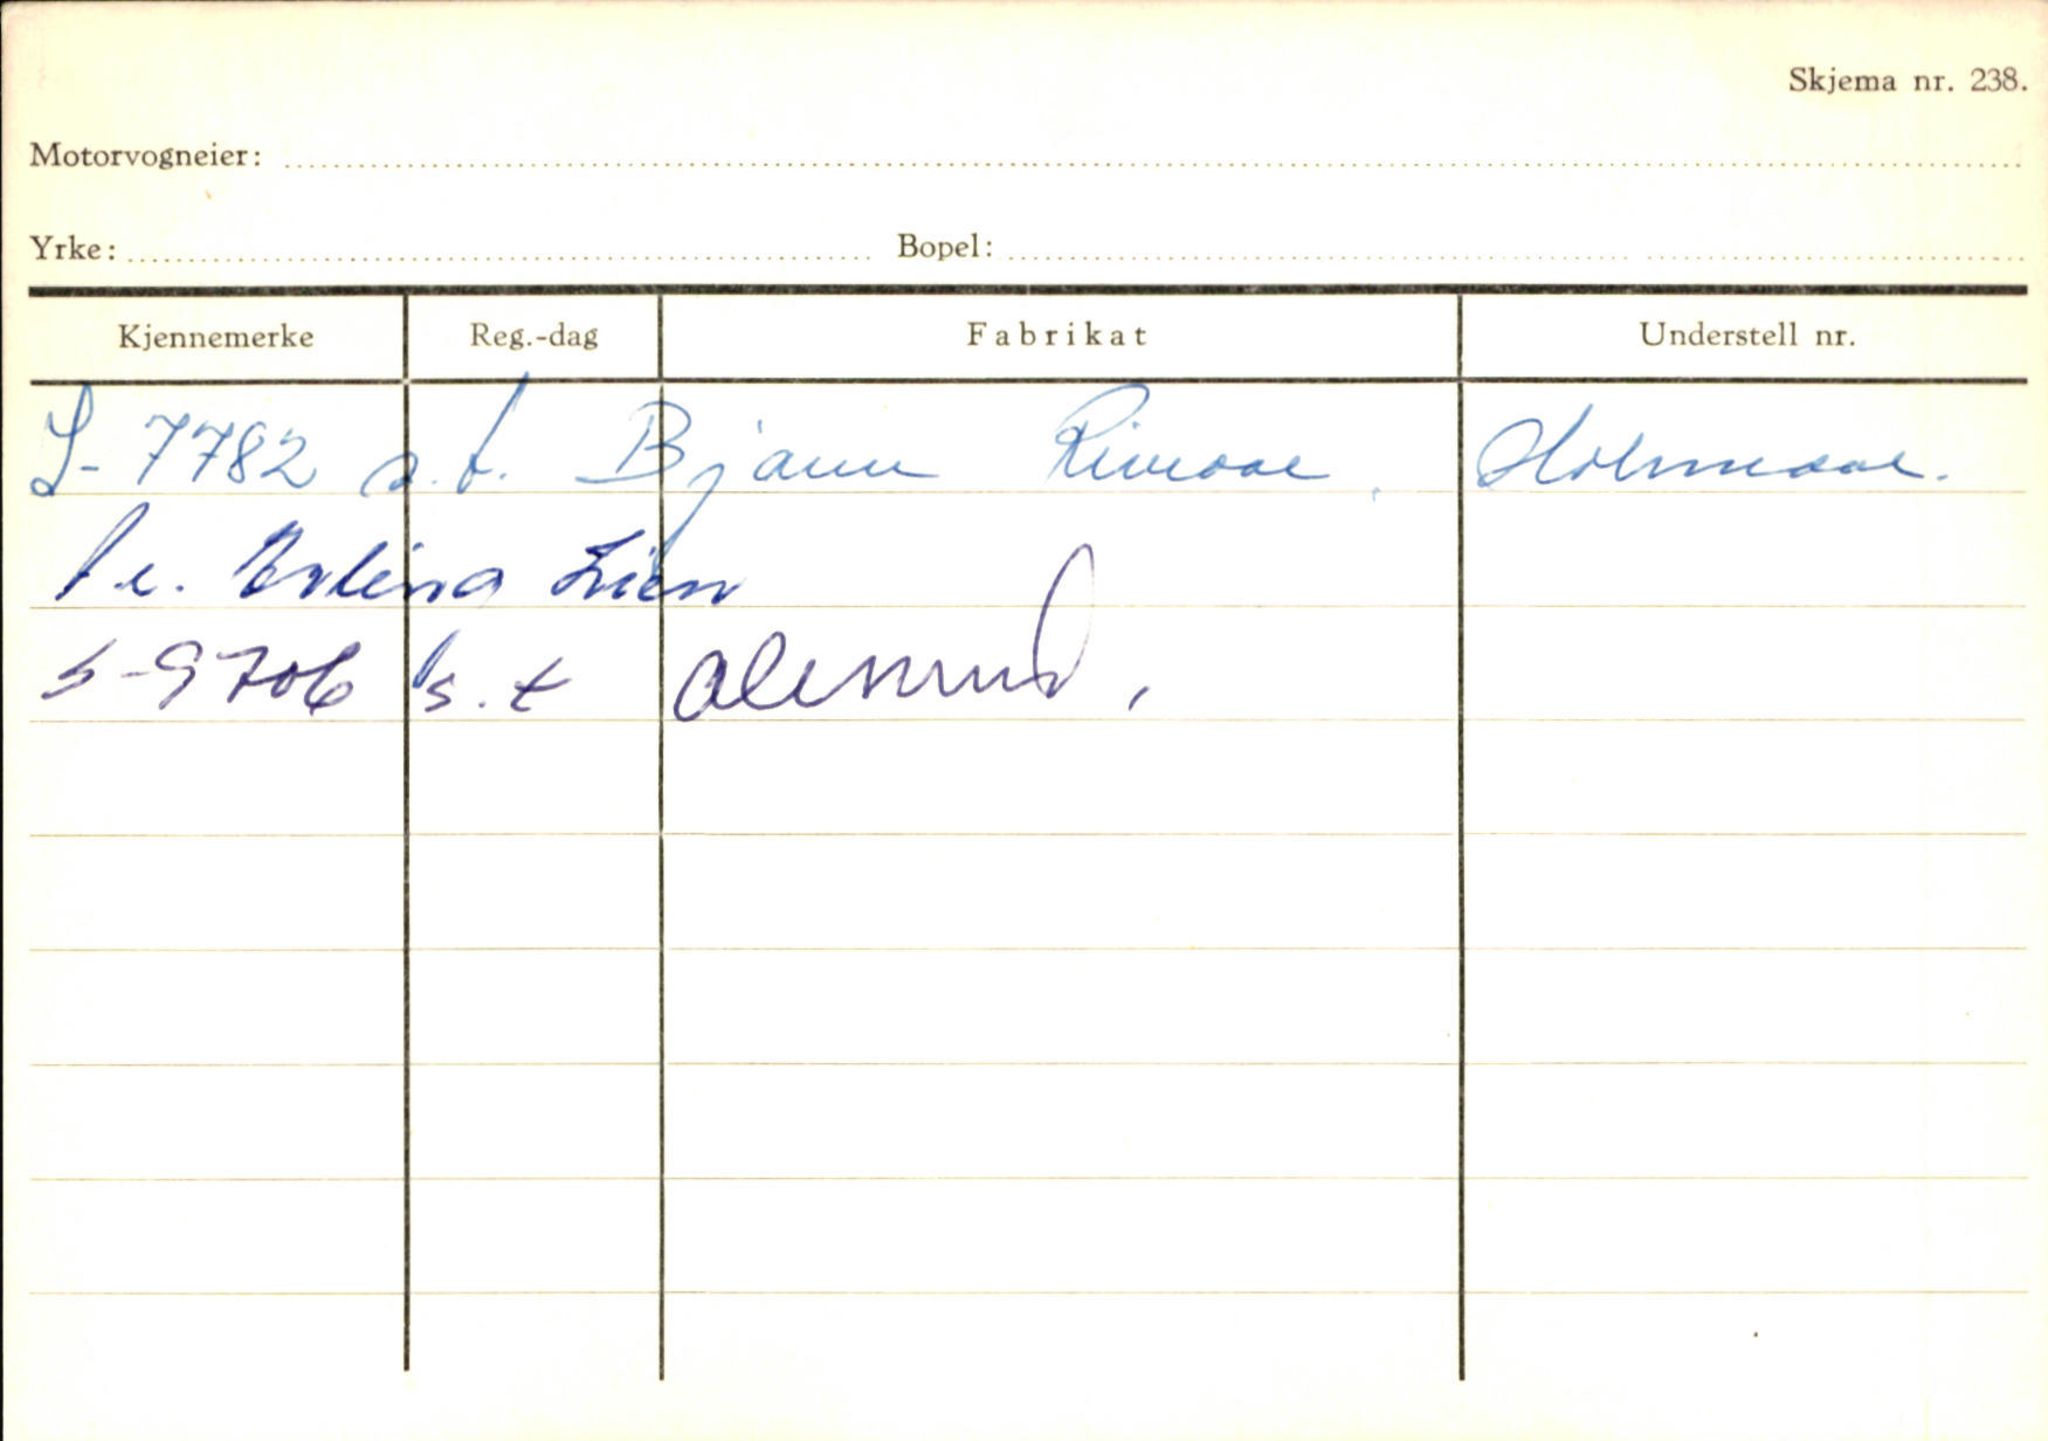 Skjema nr. 238.
Motorvogneier:
Yrke: Bopel:
Kjennemerke Reg.-dag Fabrikat Understell nr.
S-7782 s.t. Bjarne Rimoal, Holmoal.
Lien
S-9706 s.t Alesund,